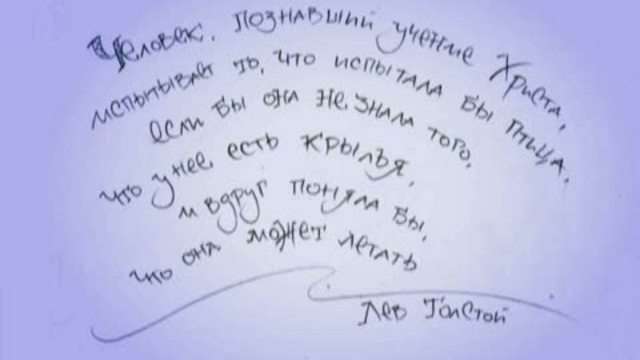 Человек, познавший учение Христа,
испытывает то, что испытала бы птица,
если бы она не знала того,
что у нее есть крылья,
и вдруг поняла бы,
что она может летать
Лев Толстой